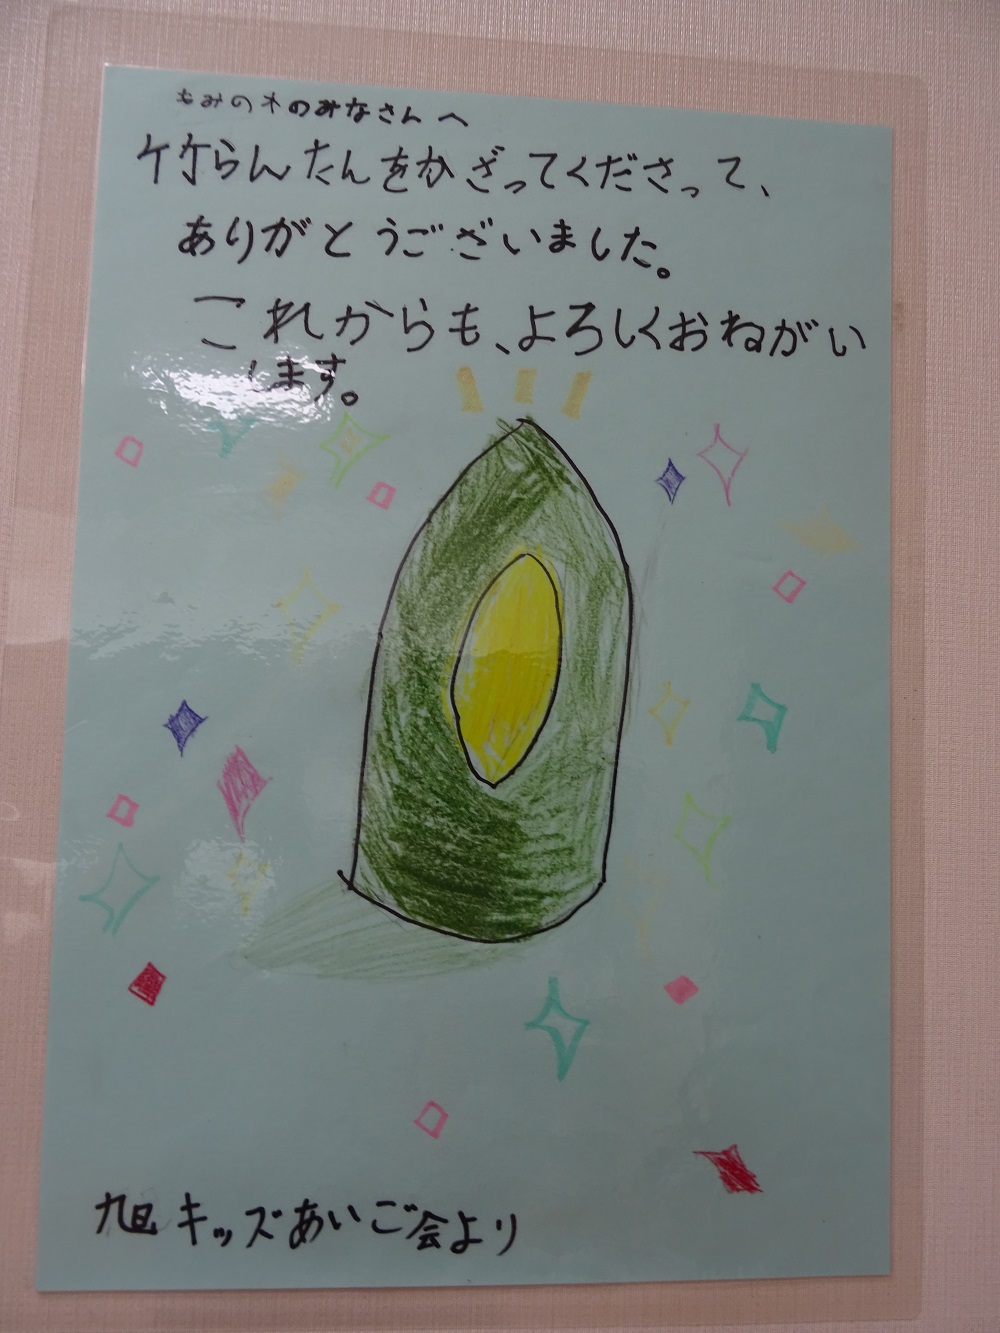 もみの木のみなさんへ
竹らんたんをかざってくださって、
ありがとうございました。
これからも、よろしくおねがい
します。
旭キッズあいご会より